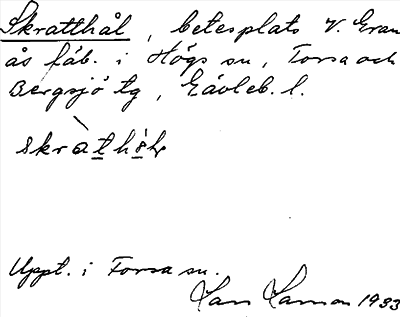 Skratthål, betesplats V. Gran
ås fäb. i Högs sn, Forsa och
Bergsjö tg, Gävleb. l.
skràthål
Uppt. i Forsa sn.
Lars Larsson 1933